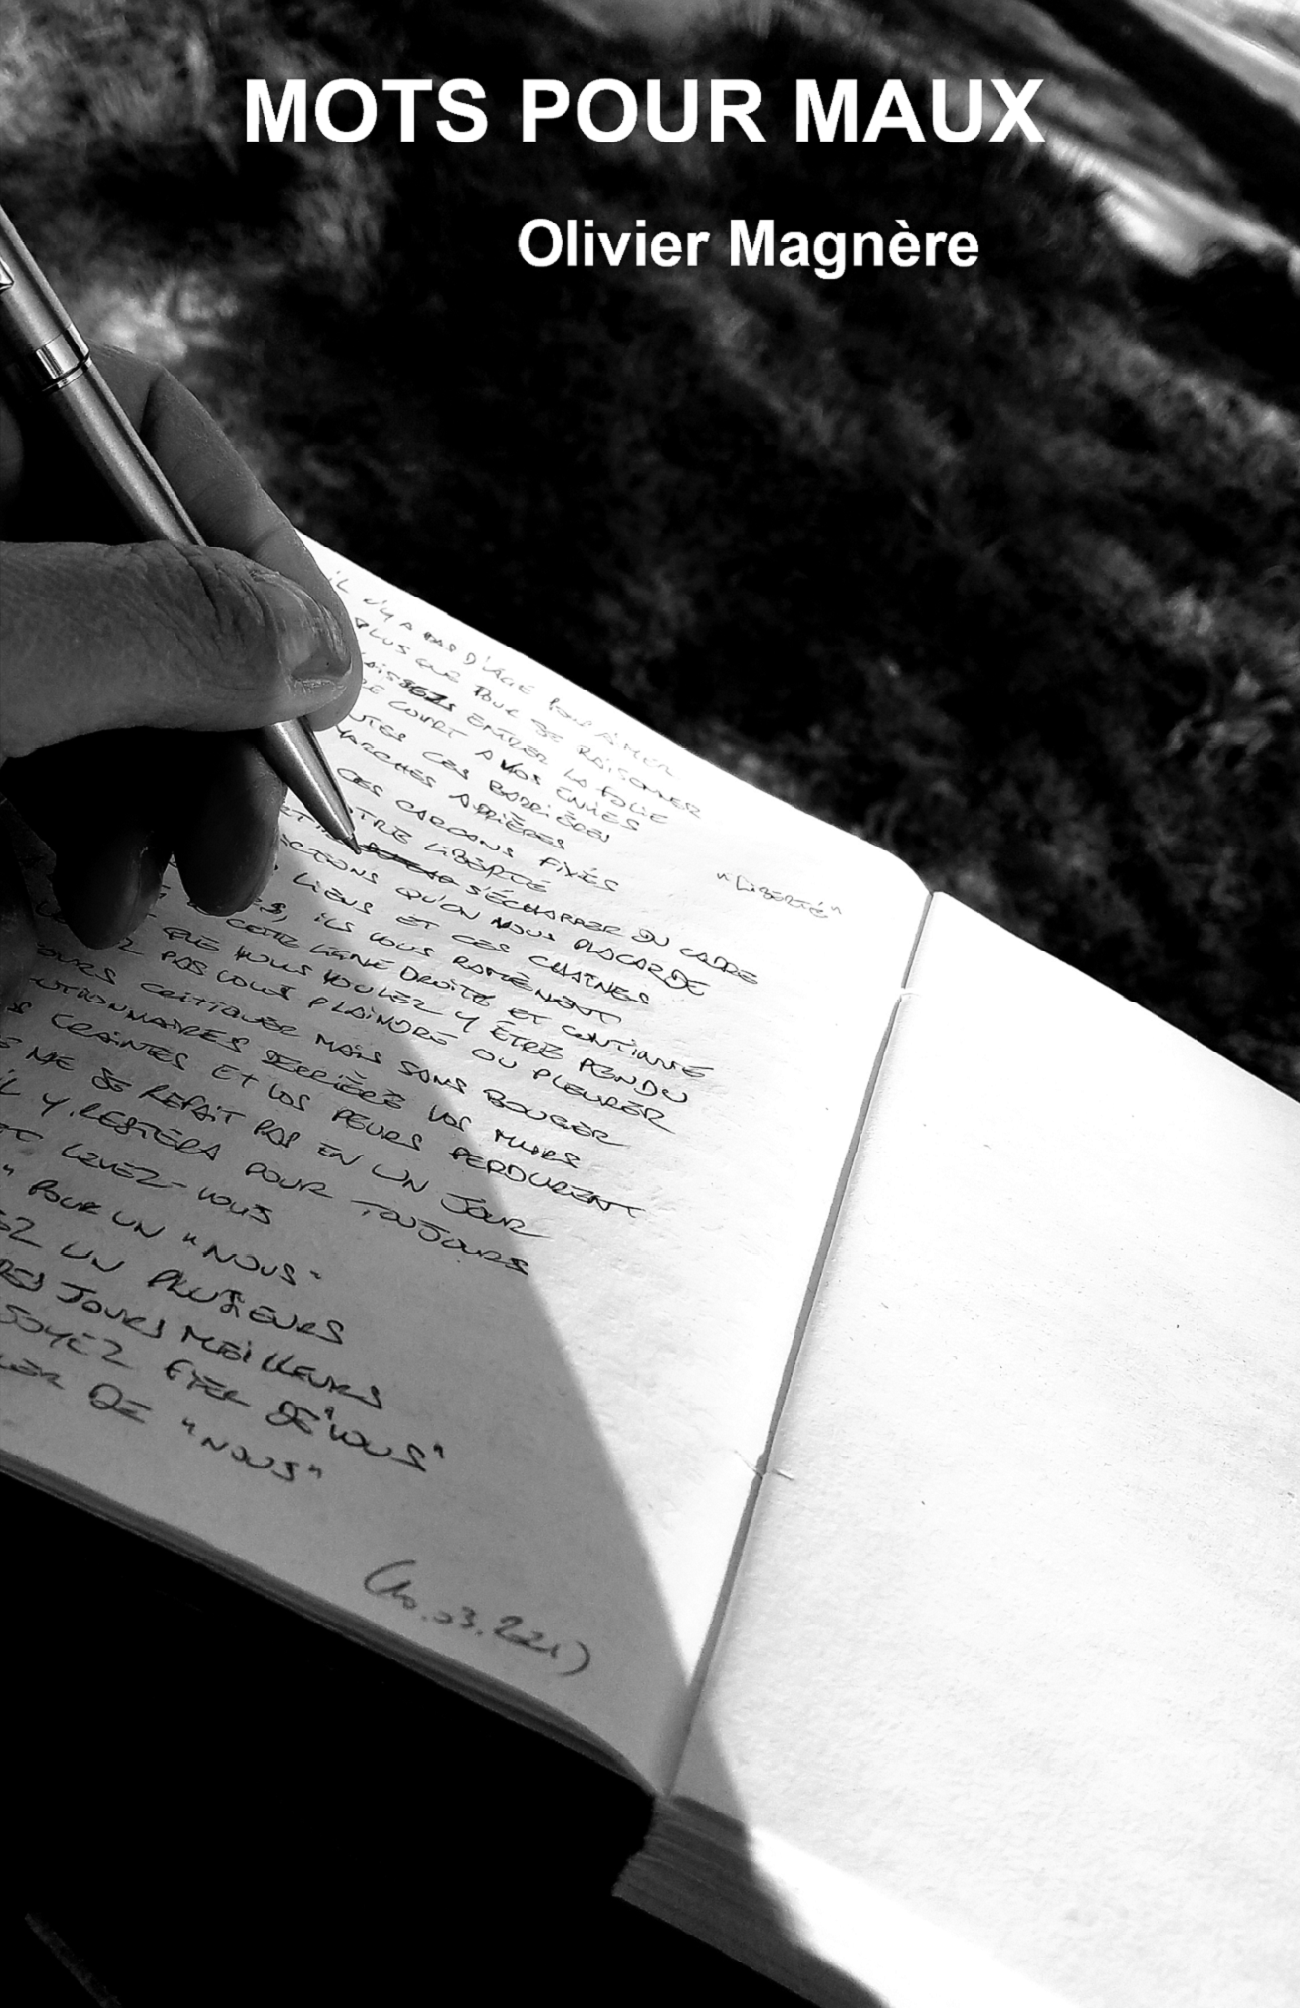 MOTS POUR MAUX
Olivier Magnère
IL N'Y A PAS D'ÂGE POUR AIMER
PLUS QUE POUR SE RAISONNER
LAISSEZ ENTRER LA FOLIE
COURT A VOS ENVIES
CES BARRIÈRES
MARCHES ARRIÈRES
CES CARCANS FIXÉS
"LIBERTÉ"
LIBERTÉ
S'ÉCHAPPER DU CADRE
QU'ON NOUS PLACARDE
LIENS ET CES CHAÎNES
ILS VOUS RAMÈNENT
CETTE LIGNE DROITE ET CONTINUE
QUE VOULEZ Y ÊTRE PENDU
PAS VOUS PLAINDRE OU PLEURER
CRITIQUER MAIS SANS BOUGER
DERRIÈRE VOS MURS
CRAINTES ET VOS PEURS PERDURENT
NE SE REFAIT PAS EN UN JOUR
IL Y RESTERA POUR TOUJOURS
LEVEZ-VOUS
POUR UN "NOUS"
UN PLUSIEURS
JOURS MEILLEURS
SOYEZ FIER DE "VOUS"
DE "NOUS"